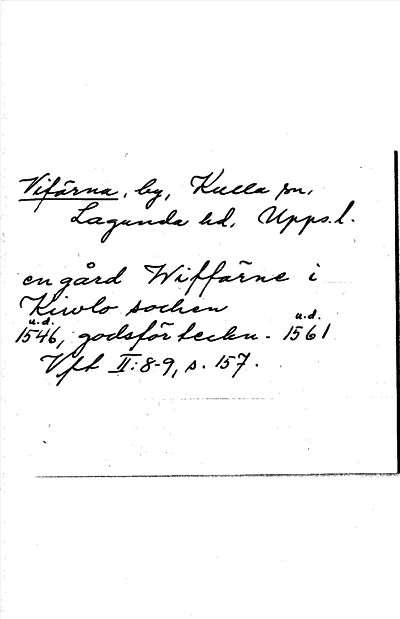 Vifärna, by, Kulla sn,
Lagunda hd, Upps.l.
en gård Wiffärne i
Kiwlo sochen
u.d. u.d.
1546, godsförteckn. 1561
Vft II:8-9, s. 157.